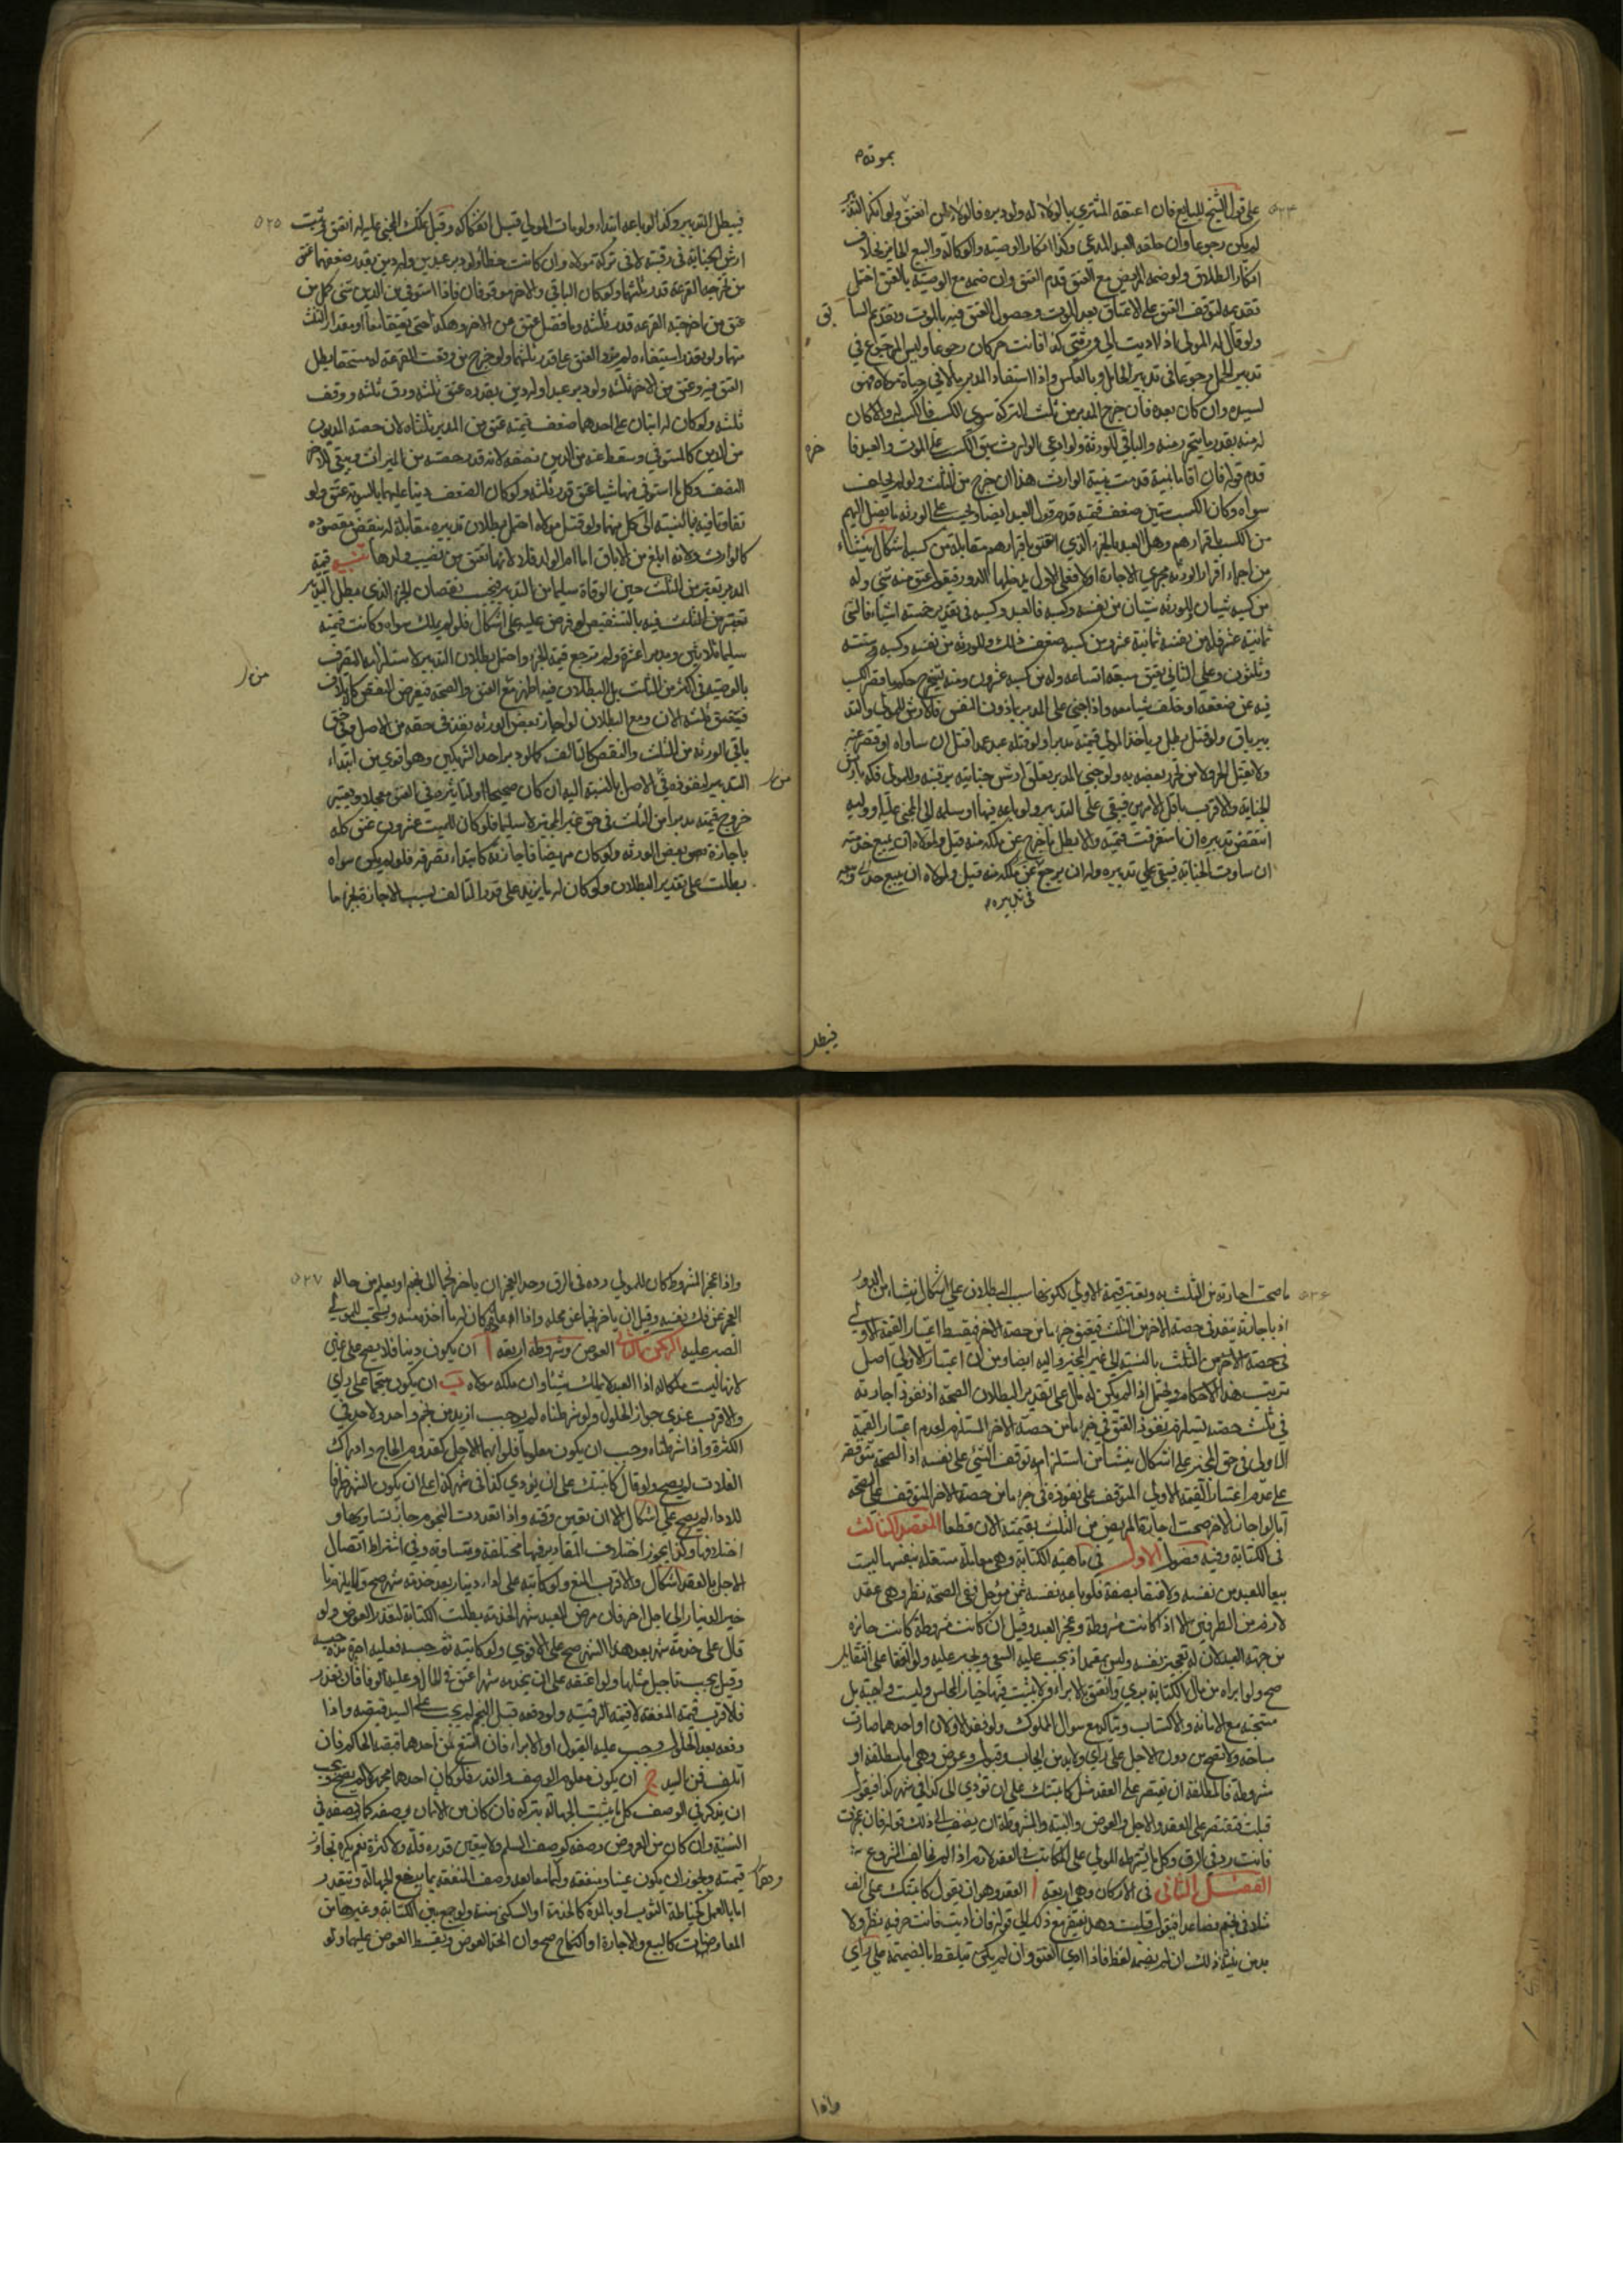 بموته
علي قول الشيخ للبايع فان اعتقه المشتري بالولاء له ولو دبره فالولاء لمن انعتق ولو انكر التد
لم يكن رجوعا وان حلفه العبد المدعي وكذا انكار الوصية والوكالة والبيع الجايز بخلاف
انكار الطلاق ولو ضمه المريض مع العتق قدم العتق وان ضمه مع الوصية بالعتق احتمل
تقديمه لتوقف العتق على الاعتاق بعد الموت وحصول العتق فيه بالموت وتقديم السا
بق
ولو قال له المولى اذا اديت الي ورثتي كذا فانت حر كان رجوعا وليس الرجوع في
تدبير الحمل رجوعا في تدبير الحامل وبالعكس واذا استفاد المدبر مالا في حياة مولاه فهو
لسيده وان كان بعده فان خرج المدبر من ثلث التركة سوي الكسب فالكسب له والا كان
له منه بقدر ما يتحرر منه والباقي للورثة ولو ادعي الوارث سبق الكسب علي الموت والعبد تا
خره
قدم قوله فان اقاما بينة قدمت بينة الوارث هذا ان خرج من الثلث ولو لم يخلف
سواه وكان الكسب ستين ضعف قيمته قدم قول العبد ايضا ويجب علي الورثة ما يفضل اليهم
من الكسب باقرارهم وهل للعبد بالجزء الذي اعتق باقرارهم مقابلة من كسبه اشكال ينشاء
من اجراء اقرار الورثة مجري الاجازة اولا فعلي الاول يدخلها الدور فيقول عتق منه شئ وله
من كسبه شيئان وللورثة شيئان من نفسه وكسبه فالعبد وكسبه في تقدير خمسة اشياء فالشئ
ثمانية عشر فله من نفسه ثمانية عشر ومن كسبه ضعف ذلك وللورثة من نفسه وكسبه ستة
وثلثون وعلي الثاني يعتق سبعة اتساعه وله من كسبه عشرون ومنه يتخرج حكم ما قصر الكسب
فيه عن ضعفه او خلف شيئا معه واذا جني علي المدبر بما دون النفس فالارش للمولي والتد
بير باق ولو قتل بطل وياخذ المولي قيمته مدبرا ولو قتله عبد عمدا قتل ان ساواه او قصر عنه
ولا يقتل الحر ولا من تحرر بعضه به ولو جني المدبر تعلق ارش جنايته برقبته وللمولي فكه بارش
الجناية والاقرب باقل الامرين فيبقي علي التدبير ولو باعه فيها او سلمه الي المجني عليه او وليه
انتقض تدبيره ان استغرقت قيمته والا بطل ما خرج عن ملكه منه قيل ولمولاه ان يبيع خدمته
ان ساوت الجناية فيبقي علي تدبيره وله ان يرجع عن ملكه منه قيل ولمولاه ان يبيع
في تدبيره
فيبطل
۵۲۵
فيبطل التدبير وكذا لو باعه ابتداء ولو مات المولي قبل افتكاكه وقبل تملك المجني عليه له انعتق وثبت
ارش الجناية في رقبته لا في تركة مولاه وان كانت خطأ ولو دبر عبدين وله دين بقدر ضعفهما عتق
من تخرجه القرعة قدر ثلثهما وكان الباقي والاخر موقوفا فاذا استوفي من الدين شئ كمل من
عتق من اخرجته القرعة قدر ثلثه وما فضل عتق من الاخر وهكذا حتي يعتقا معا او مقدار الثلث
منهما ولو تعذر استيفاءه لم يزد العتق علي قدر ثلثهما ولو خرج من وقعت القرعة له مستحقا بطل
العتق فيه وعتق من الاخر ثلثه ولو دبر عبدا وله دين بقدره عتق ثلثه ورق ثلثه ووقف
ثلثه ولو كان له ابنان علي احدهما ضعف قيمته عتق من المدبر ثلثاه لان حصة المديون
من الدين كالمستوفي وسقط عنه من الدين نصفه لانه قدر حصته من الميراث ويبقي للاخر
النصف وكلما استوفي منها شيئا عتق قدر ثلثه ولو كان الضعف دينا عليهما بالسوية عتق ولو
تفاوتا فيه فبالنسبة الي كل منهما ولو قتل مولاه احتمل بطلان تدبيره مقابلة له بنقيض مقصوده
كالوارث ولانه ابلغ من الاباق اما ام الولد فلا لانها تنعتق من نصيب ولدها تنبيه قيمة
المدبر تعتبر من الثلث حين الوفاة سليما من التدبير ويحسب نقصان الجزء الذي بطل التدبير
تعتبر من الثلث فيه بالتشقيص لو فرض عليه علي اشكال فلو لم يملك سواه وكانت قيمته
سليما ثلاثين ومدبرا عشرة ولم ترجع قيمة الجزء واحتمل بطلان التدبير لاستلزامه التصرف
من
بالوصية في اكثر من الثلث بل البطلان فيه اظهر مع العتق والصحة فيعرض النقص كالاتلاف
فيعتق ثلثه الان ومع البطلان لو اجاز بعض الورثة نفذ في حقه من الاصل وفي حق
باقي الورثة من الثلث والنقص كالتالف كما لو دبر احد الشريكين وهو اقوي من ابتداء
التدبير لنفوذه في الاصل بالنسبة اليه ان كان صحيحا
من
خروج قيمته مدبرا من الثلث في حق غير المجيز لا سليما فلو كان للميت عشرون عتق كله
باجازة بعض الورثة ولو كان مريضا فاجازته كابتداء تصرفه فلو لم يكن سواه
بطلت علي تقدير البطلان ولو كان له ما يزيد علي قدر التالف بسبب الاجازة فبجزء ما
ما صحت اجازته من الثلث به وتعتبر قيمته الاولي ككونها سبب البطلان علي اشكال ينشاء من الدور
اذ باجازته ينفذ في حصة الاخر من الثلث فيعتق جزء ما من حصة الاخر فيسقط اعتبار القيمة الاولي
في حصة الاخر من الثلث بالنسبة الي غير المجيز واليه ايضا ومن ان اعتبار الاولي اصل
ترتيب هذه الاحكام ويحتمل اذا لم يكن له مال علي تقدير البطلان الصحة اذ نفوذ اجازته
في ثلث حصته يستلزم نفوذ العتق في جزء ما من حصة الاخر المستلزم لعدم اعتبار القيمة
الاولي في حق المجيز علي اشكال ينشأ من استلزامه توقف الشئ علي نفسه اذ الصحة تتوقف
علي عدم اعتبار القيمة الاولي المتوقف علي نفوذه في جزء ما من حصة الاخر المتوقف علي الصحة
اما لو اجاز الاخر صحت اجازة المريض من الثلث بقيمته الان قطعا المقصد الثالث
في الكتابة وفيه فصول الاول في ماهية الكتابة وهي معاملة مستقلة بنفسها ليست
بيعا للعبد من نفسه ولا عتقا بصفة فلو باعه نفسه بثمن مؤجل ففي الصحة نظر وهي عقد
لازم من الطرفين الا اذا كانت مشروطة وعجز العبد وقيل ان كانت مشروطة كانت جائزة
من جهة العبد لان له تعجيز نفسه وليس بمعتمد اذ يجب عليه السعي ويجبر عليه ولو اتفقا على التقايل
صح ولو ابراه من مال الكتابة بري وانعتق بالابراء ولا يثبت فيها خيار المجلس وليست واجبة بل
مستحبة مع الامانة والاكتساب ويتاكد مع سوال المملوك ولو فقد الاولان او احدهما صارت
مباحة ولا تصح من دون الاجل علي رأي ولا بد من ايجاب وقبول وعوض وهي اما مطلقة او
مشروطة فالمطلقة ان يقتصر علي العقد مثل كاتبتك علي ان تؤدي الي كذا في شهر كذا فيقول
قبلت فتقتصر علي العقد والاجل والعوض والنية والمشروطة ان يضيف الي ذلك قوله فان عجزت
فانت رد في الرق وكل ما يشترطه المولي علي المكاتب في العقد لازم اذا لم يخالف المشروع
الفصل الثاني في الاركان وهي اربعة ا العقد وهو ان يقول كاتبتك علي الف
مثلا في نجم فصاعدا فيقول قبلت وهل يفتقر مع ذلك الي قوله فان اديت فانت حر فيه نظر ولا
بد من نية ذلك ان لم يضمه لفظا فاذا ادي انعتق وان لم يكن تيلفظ بالضميمة علي رأي
واذا
۵۲۷
واذا عجز المشروط كان للمولي رده في الرق وحد العجز ان ياخر نجما الي نجم او يعلم من حاله
العجز عن فك نفسه وقيل ان ياخر نجما عن محله واذا اعاده كان له ما اخذ منه ويستحب للمولي
الصبر عليه الركن الثاني العوض وشروطه اربعة ا ان يكون دينا فلا يصح علي عين
لانها ليست ملكا له اذ العبد لا يملك شيئا وان ملكه مولاه ب ان يكون منجما علي راي
والاقرب عندي جواز الحلول ولو شرطناه لم يجب ازيد من نجم واحد ولا حد في
الكثرة واذا شرطناه وجب ان يكون معلوما فلو ابهما الاجل كقدوم الحاج وادراك
الغلات لم يصح ولو قال كاتبتك علي ان تؤدي كذا في شهر كذا علي ان يكون الشهر ظرفا
للاداء لم يصح علي اشكال الا ان تعين وقته واذا تعددت النجوم جاز تساويها و
اختلافها وكذا يجوز اختلاف المقادير فيها مختلفة ومتساوية وفي اشتراط اتصال
الاجل بالعقد اشكال والاقرب المنع ولو كاتبه على اداء دينار بعد خدمته شهر صح ولا يلزم تا
خير الدينار الي اجل اخر فان مرض العبد شهر الخدمة بطلت الكتابة لتعذر العوض ولو
قال علي خدمة شهر بعد هذا الشهر صح علي الاقوي ولو كاتبه ثم حبسه فعليه اجرة مدة حبسه
وقيل يجب تاجيل مثلها ولو اعتقه علي ان يخدمه شهرا عتق في الحال وعليه الوفاء فان تعذر
فالاقرب قيمة المنفعة لا قيمة الرقبة ولو دفعه قبل النجم لم يجب علي السيد قبضه واذا
دفعه بعد الحلول وجب عليه القبول او الابراء فان امتنع من احدهما قبضه الحاكم فان
اتلف فمن السيد ج ان يكون معلوم الوصف والقدر فلو كان احدهما مجهولا لم يصح ويجب
ان يذكر في الوصف كل ما يثبت الجهالة بتركه فان كان من الاثمان وصفه كما يصفه في
النسية وان كان من العروض وصفه كوصف السلم ولا يتعين قدره قلة ولا كثرة نعم يكره تجاوز
قيمته ويجوز ان يكون عينا ومنفعة وهما معا بعد وصف المنفعة بما يرفع الجهالة وتتقدر
اما بالعمل كخياطة الثوب او بالمدة كالخدمة او السكني سنة ولو جمع بين الكتابة وغيرها من
المعاوضات كالبيع والاجارة او النكاح صح وان اتحد العوض ويقسط العوض عليهما ولو